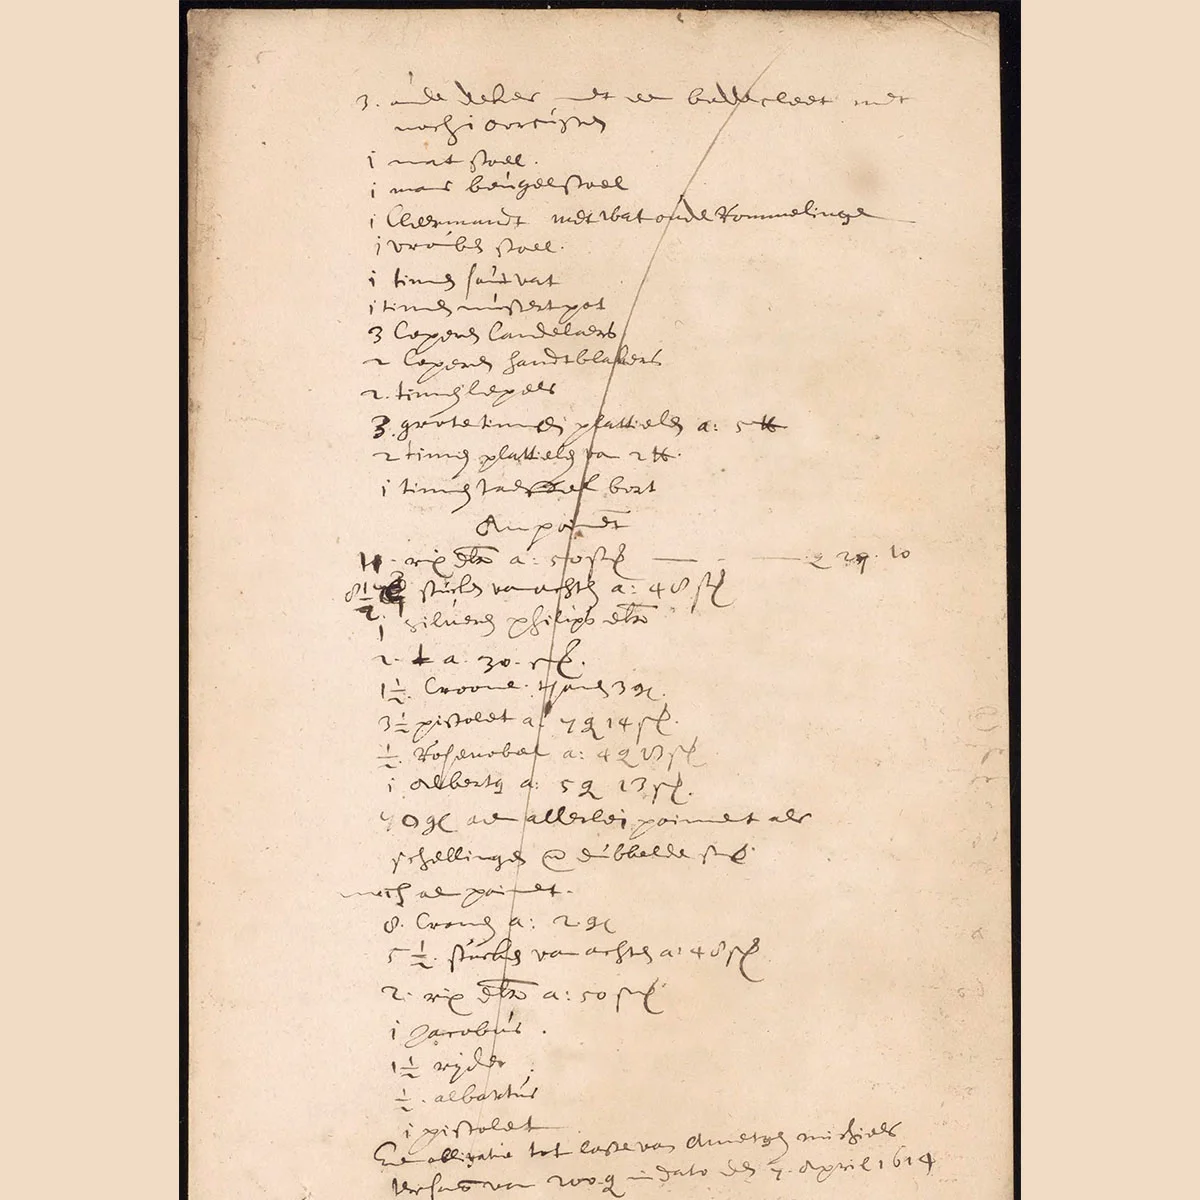 3. oude deken met een beddecleet met
noch i oorcussen
i mat stoel.
i mans beugelstoel
i Cleermandt met wat oude Rommelinge
i vrouwen stoel.
i tinnen soutvat
i tinnen mustertpot
3 Coperen Candelaers
2 Coperen handtblakers
2. tinnen lepels
3. grote tinnen plattielen a: 5 ℔
2 tinnen plattielen van 2 ℔.
i tinnen taeffel bort
An paiment
11. rix dlrs a: 50 st — 27. 10
8 1/2 stucken van achten a: 48 st
1 silveren philips dlr
2. a. 30. st.
1 1/2. Croone. 3 gl.
3 1/2 pistolet a: 7 g 14 st.
1/2. Rosenobel a: 4 g st
i Albertus a: 5 g 13 st.
gl aen allerlei paiment als
schellingen en dubbelde st
noch aen paiment.
8. Cronen a: 2 gl
5 1/2. stucken van achten a: 48 st
2. rix dlrs a: 50 st
i Jacobus.
1 1/2 rijder
1/2. albartus
i pistolet
Een obligatie tot laste van michiels
van 200 g in dato den 7. April 1614